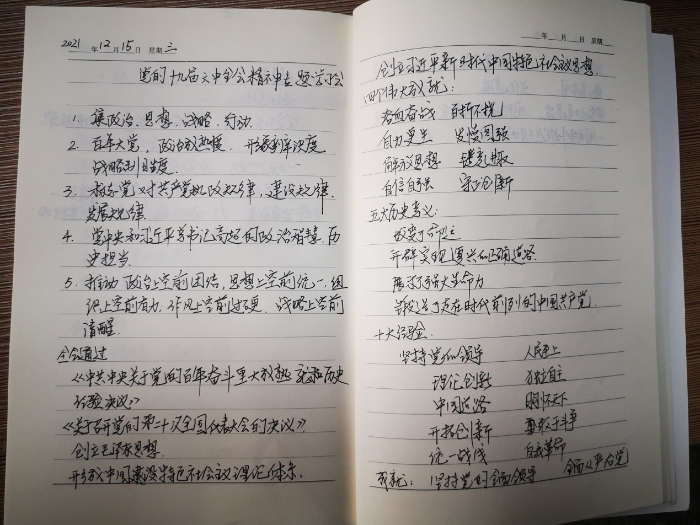 2021 年 12 月 15 日 星期 三
党的十九届六中全会精神专题学习会
1. 集政治、思想、战略、行动.
2. 百年大党,政治
战略
3. 共产党执政规律,建设规律
发展规律
4. 党中央和习近平总书记高超的政治智慧、历
史担当.
5. 推动 政治上空前团结,思想上空前统一,组
织上空前有力,作风上空前过硬,战略上空前
清醒.
全会通过
《中共中央关于党的百年奋斗重大成就 和历史
经验决议》
《关于召开党的第二十次全国代表大会的决议》
创立毛泽东思想.
形成中国建设特色社会主义理论体系.
年 月 日 星期
创立习近平新时代中国特色社会主义思想.
四个伟大成就:
浴血奋战 百折不挠
自力更生 发愤图强
解放思想 锐意进取
自信自强 守正创新
五大历史意义:
改变了命运
开辟实现复兴的正确道路
展示了强大生命力
锻造了走在时代前列的中国共产党
十大经验.
坚持党的领导 人民至上
理论创新 独立自主
中国道路 胸怀天下
开拓创新 敢于斗争
统一战线 自我革命
坚持党的全面领导 全面从严治党